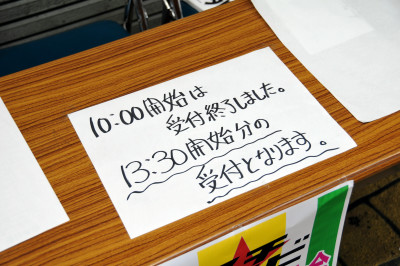 10:00開始は
受付終了しました。
13:30開始分の
受付となります。